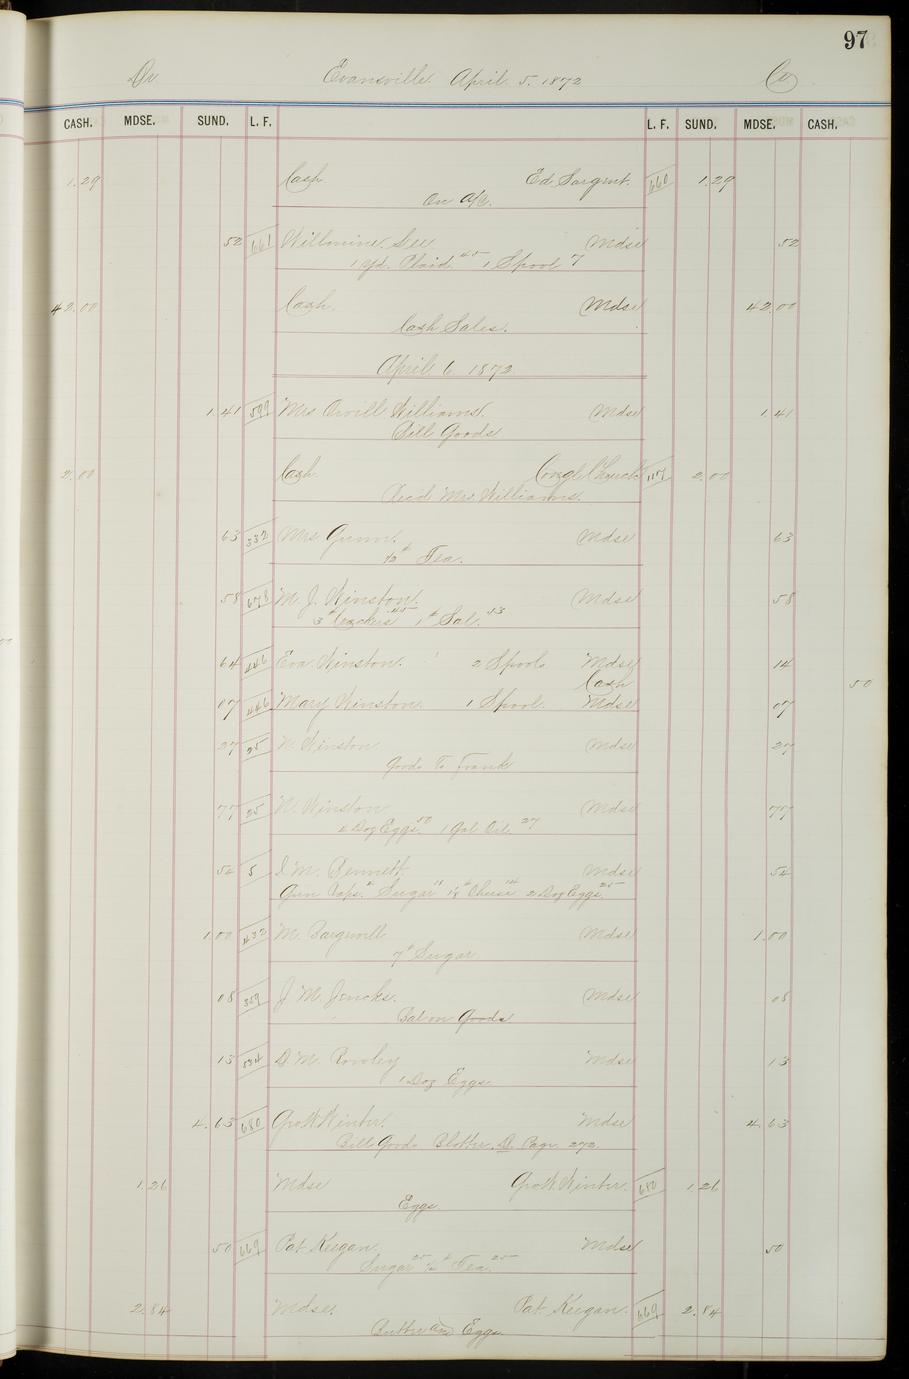 97
Dr Evansville April 5. 1872 Cr
CASH. MDSE. SUND. L. F. L. F. SUND. MDSE. CASH.
1.29 Cash Ed Sargent. 660 1.29
On a/c.
52 661 Willmine. See Mdse 52
1 yd. Plaid 45 1 Spool 7
42.00 Cash. Mdse 42.00
Cash Sales.
April 6 1872
1.41 599 Mrs Orvill Williams. Mdse 1.41
Bill Goods
2.00 Cash Congl Church 117 2.00
Rec'd Mrs. Williams.
63 332 Mrs Gunn. Mdse 63
½# Tea.
58 678 M. J. Winston. Mdse 58
3# Crackers 45 1# Sal. 13
64 446 Eva Winston. 2 Spools Mdse 14
Cash 50
07 446 Mary Winston. 1 Spool. Mdse 07
27 25 N. Winston Mdse 27
Goods To Frank
77 25 N. Winston Mdse 77
4 Doz Eggs. 50 1 Gal Oil 27
54 5 I. M. Bennett. Mdse 54
Gun Caps. Sugar 11 Cheese 14 2 Doz Eggs. 25
1.00 432 M. Mdse 1.00
7# Sugar
08 359 J. M. Jencks. Mdse 08
Bal on Goods
13 534 D. M. Rowley Mdse 13
1 Doz Eggs.
4.63 680 Geo W. Winter. Mdse 4.63
Bill Goods Blotter. D. Page 272.
1.26 Mdse Geo W. Winter. 680 1.26
Eggs.
50 669 Pat Keegan. Mdse 50
Sugar 25 ½# Tea. 25
2.84 Mdse. Pat Keegan. 669 2.84
Butter and Eggs.